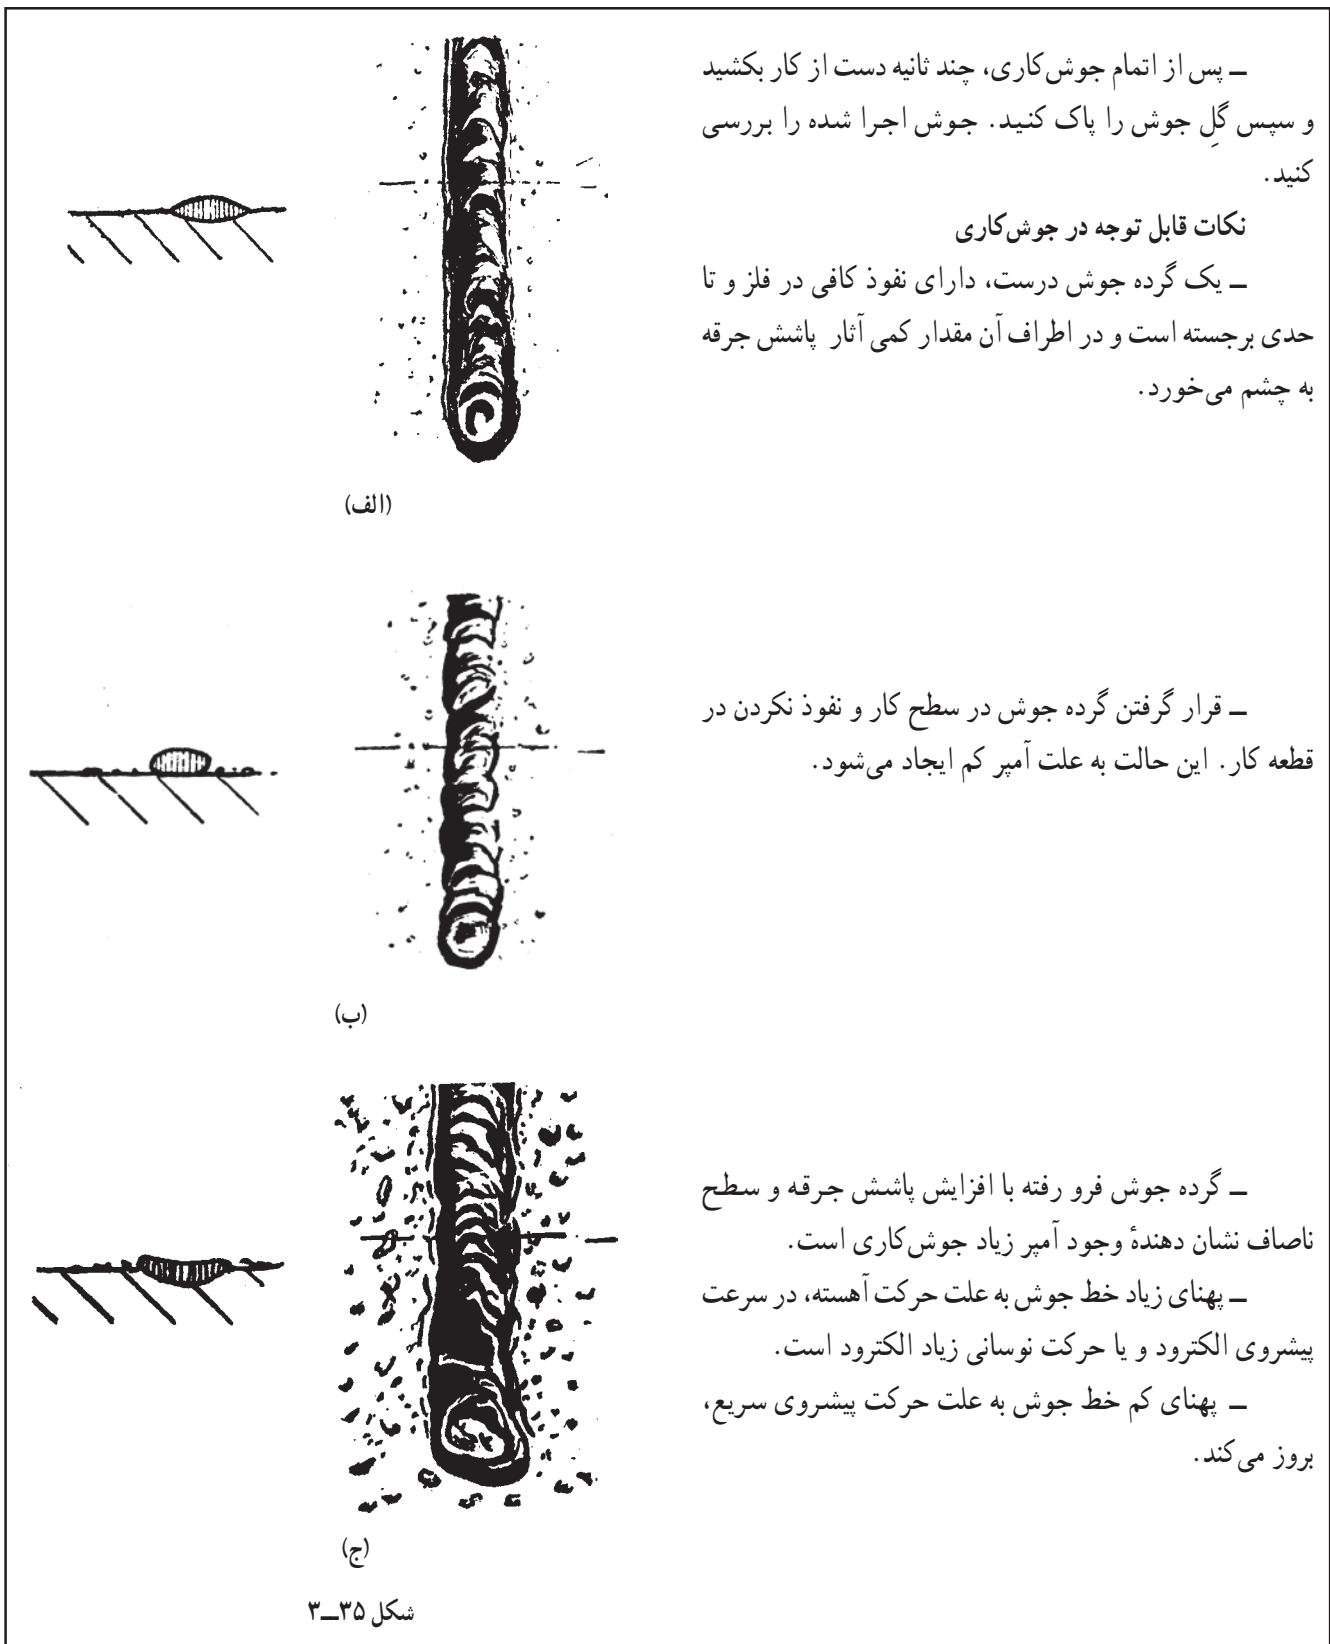 ــ پس از اتمام جوش‌کاری، چند ثانیه دست از کار بکشید
و سپس گِل جوش را پاک کنید. جوش اجرا شده را بررسی
کنید.
نکات قابل توجه در جوش‌کاری
ــ یک گرده جوش درست، دارای نفوذ کافی در فلز و تا
حدی برجسته است و در اطراف آن مقدار کمی آثار پاشش جرقه
به چشم می‌خورد.
(الف)
ــ قرار گرفتن گرده جوش در سطح کار و نفوذ نکردن در
قطعه کار. این حالت به علت آمپر کم ایجاد می‌شود.
(ب)
ــ گرده جوش فرو رفته با افزایش پاشش جرقه و سطح
ناصاف نشان دهندهٔ وجود آمپر زیاد جوش‌کاری است.
ــ پهنای زیاد خط جوش به علت حرکت آهسته، در سرعت
پیشروی الکترود و یا حرکت نوسانی زیاد الکترود است.
ــ پهنای کم خط جوش به علت حرکت پیشروی سریع،
بروز می‌کند.
(ج)
شکل ۳۵ــ۳